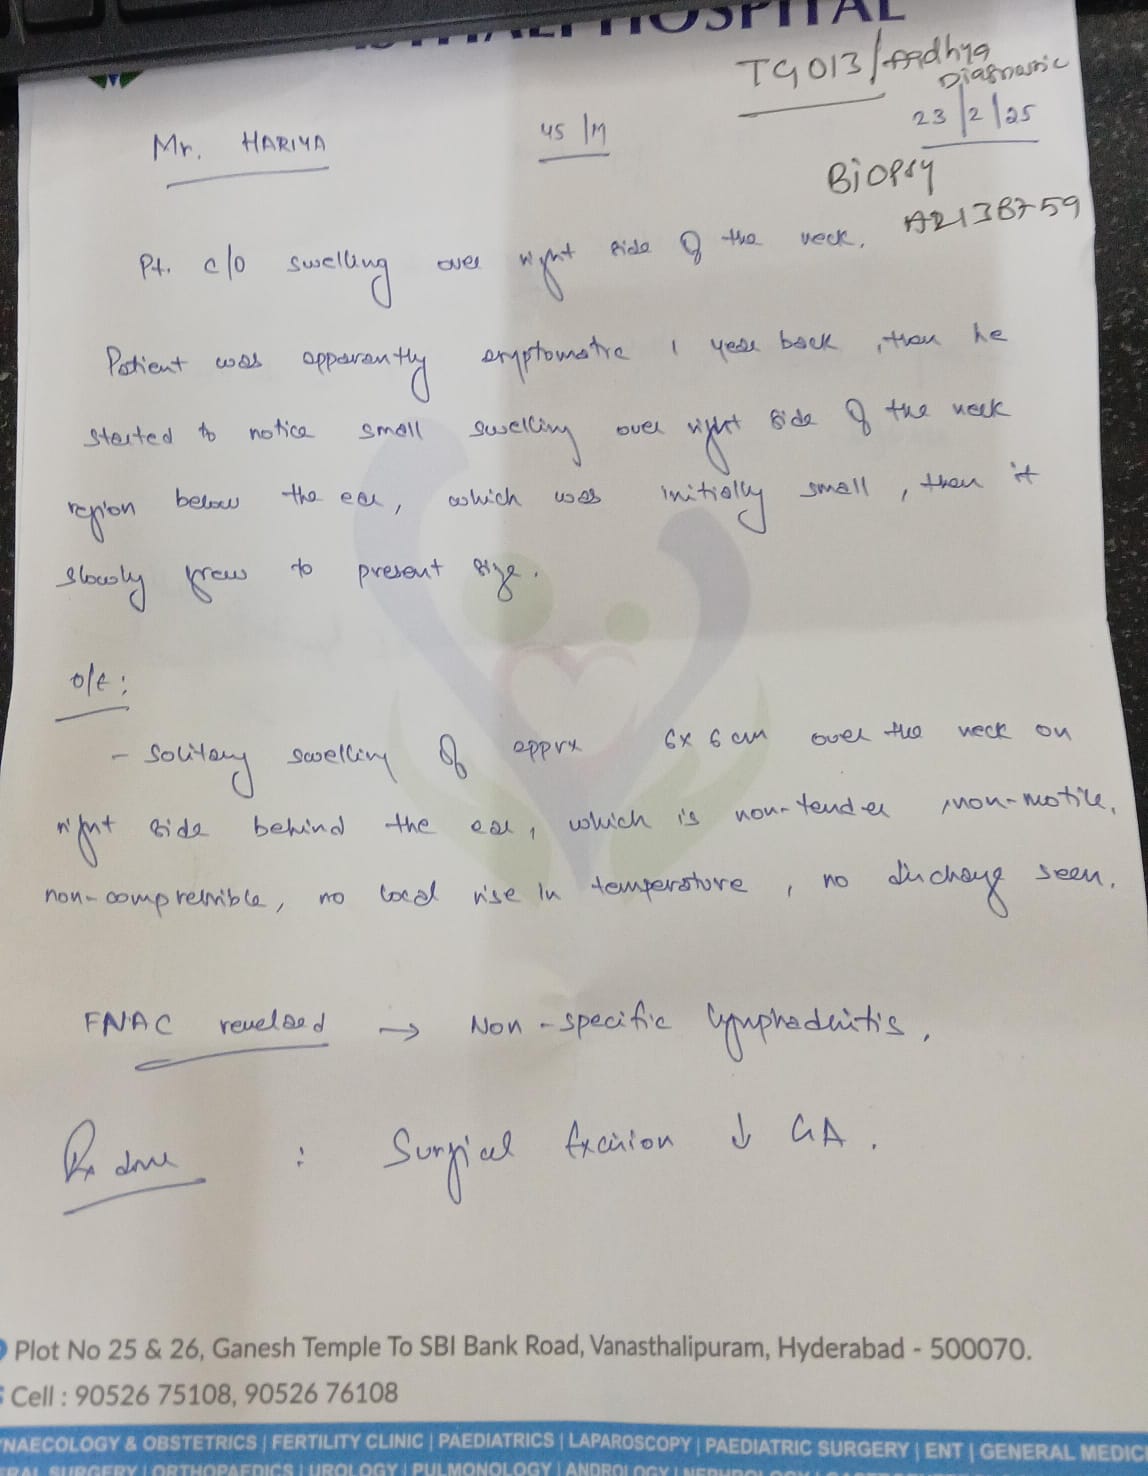 HOSPITAL
TG013/Aadhya
Diagnostic
23/2/25
Mr. HARIYA 45/M
Biopsy
A2138759
Pt. c/o swelling over right side of the neck.
Patient was apparently asymptomatic 1 year back, then he
started to notice small swelling over right side of the neck
region below the ear, which was initially small, then it
slowly grew to present size.
O/E:
- Solitary swelling of apprx 6x6 cm over the neck on
right side behind the ear, which is non-tender, non-motile,
non-compressible, no local rise in temperature, no discharge seen.
FNAC revelaed → Non-specific lymphadenitis,
Rx done : Surgical Excision ↓ GA.
Plot No 25 & 26, Ganesh Temple To SBI Bank Road, Vanasthalipuram, Hyderabad - 500070.
Cell : 90526 75108, 90526 76108
NAECOLOGY & OBSTETRICS | FERTILITY CLINIC | PAEDIATRICS | LAPAROSCOPY | PAEDIATRIC SURGERY | ENT | GENERAL MEDIC
RAL SURGERY | ORTHOPAEDICS | UROLOGY | PULMONOLOGY | ANDROLOGY